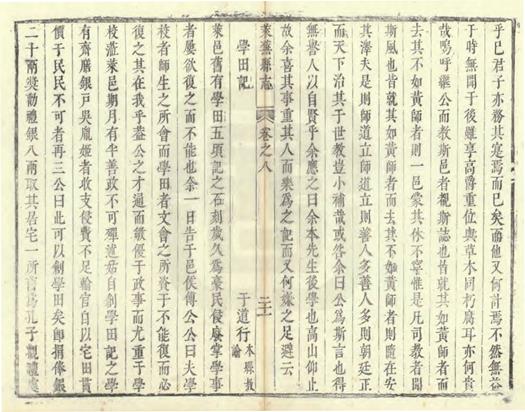 乎已君子亦務其寔焉而已矣而他又何計焉不然無益
于時無聞于後雖享高爵重位與草木同朽腐耳亦何貴
哉嗚呼繼公而教斯邑者觀斯誌也皆就其如黄師者而
去其不如黄師者則一邑蒙其休不寧惟是凡司教者聞
斯風也皆就其如黄師者而去其不如黄師者則隨在安
其澤夫是則師道立師道立則善人多善人多則朝廷正
而天下治其于世教豈小補哉或咎余曰公爲斯言也得
無譽人以自賢乎余應之曰余本先生後學也高山仰止
故余喜其事重其人而樂爲之記而又何嫌之足避云
萊蕪縣志 卷之八
學田記 于道行 本縣教諭
萊邑舊有學田五頃記之石刻歲久爲豪民侵廢掌學事
者屢欲復之而不能也余一日告于邑侯傅公公曰夫學
校者師生之所會而學田者文會之所資于不能復而必
復之其在我乎蓋公之才通而敏優于政事而尤重于學
校涖萊邑期月有半善政不可殫述茲自創學田記之學
有齊府銀戸吳胤姬者收支侵費不足輸官自以宅田貰
價于民民不可者再三公曰此可以創學田矣卽捐俸銀
二十兩獎勸禮銀八兩取其居宅一所官爲孔子觀禮處